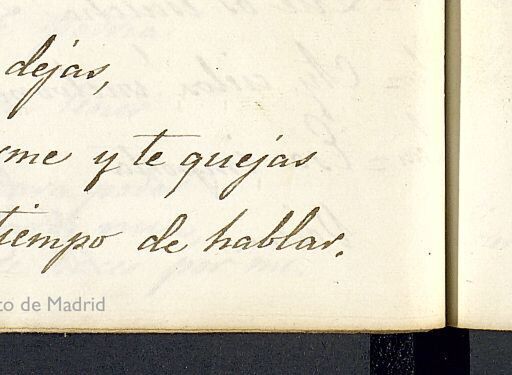 dejas,
me y te quejas
tiempo de hablar.
to de Madrid